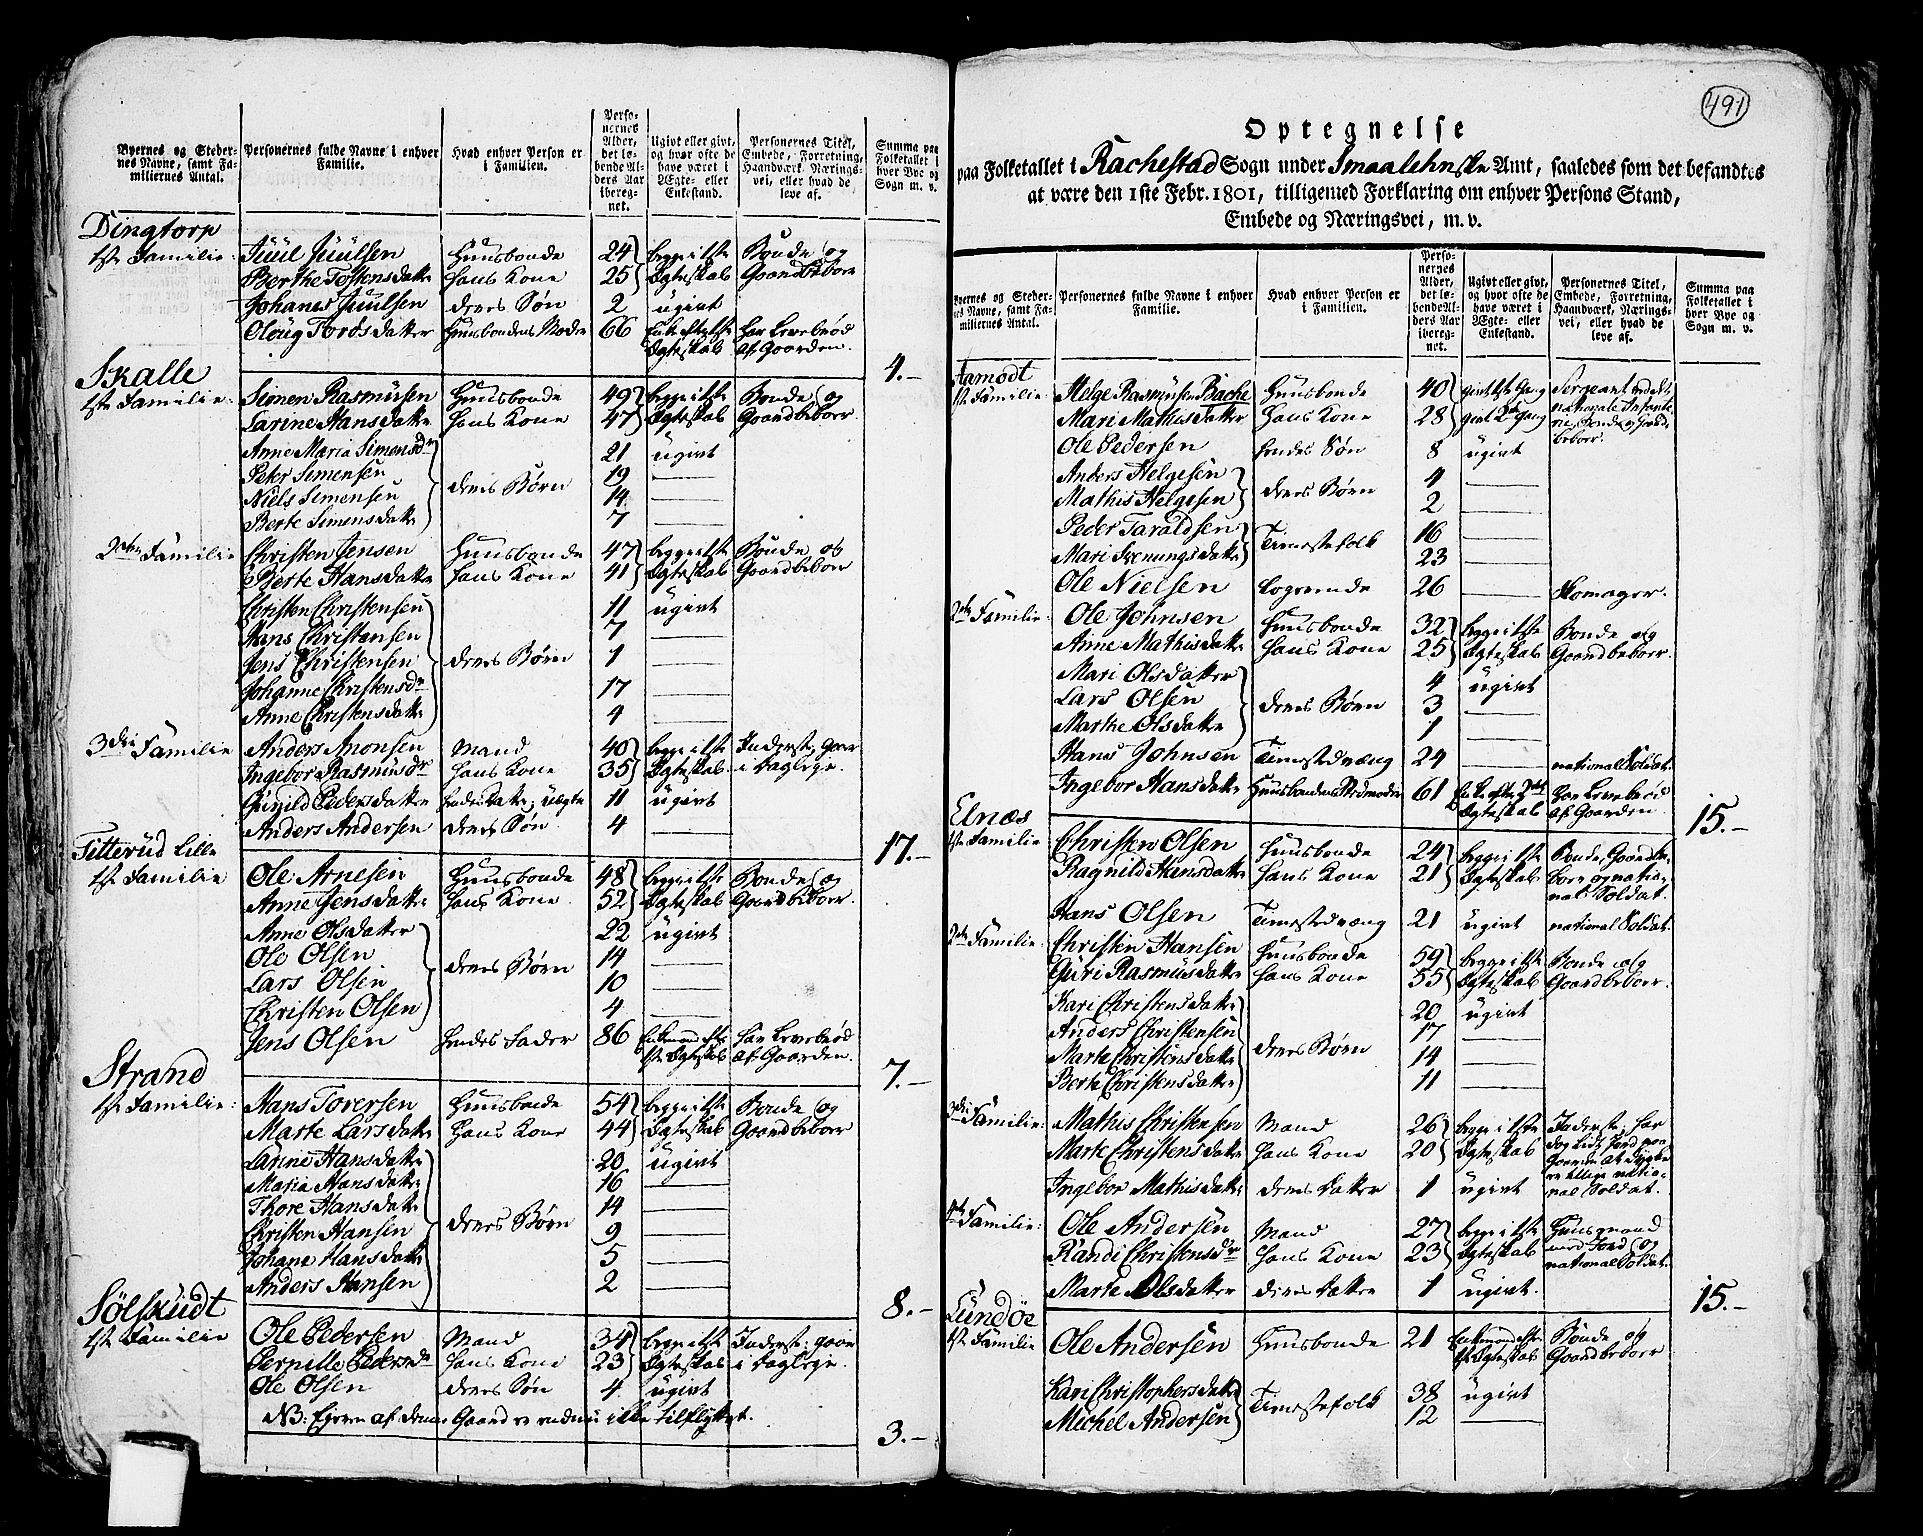 Byernes og Steder-
nes Navne, samt Fa-
miliernes Antal.
Personernes fulde Navne i enhver
Familie.
Hvad enhver Person er
i Familien.
Perso-
nernes
Alder,
det lø-
bende Al-
ders Aar
ibereg-
net.
Ugivt eller givt,
og hvor ofte de
have været i
Ægte- eller
Enkestand.
Personernes Titel,
Embede, Forretning,
Haandværk, Nærings-
vei, eller hvad de
leve af.
Summa paa
Folketallet i
hver Bye og
Sogn m. v.
Dingtorp
1ste Familie: Juul Juulsen Huusbonde 24 begge i 1ste Bonde og
Berthe Tostensdatter hans Kone 25 Ægteskab Gaardbeboer
Johanes Juulsen deres Søn 2 ugivt
Oloug Tordsdatter Huusbondens Moder 66 Enke efter 1ste har Levebrød
Ægteskab af Gaarden.
4.-
Skalle
1ste Familie: Simen Rasmusen Huusbonde 49 begge i 1ste Bonde og
Karine Hansdatter hans Kone 47 Ægteskab Gaardbeboer
Anne Maria Simensdr 21 ugivt
Peter Simensen 19
Niels Simensen deres Børn 14
Berte Simensdatter 7
2den Familie Christen Jensen Huusbonde 47 begge i 1ste Bonde og
Berte Hansdatter hans Kone 41 Ægteskab Gaardbeboer
Christen Christensen 11 ugivt
Hans Christensen 7
Jens Christensen deres Børn 1
Johanne Christensdr 17
Anne Christensdatter 4
3die Familie Anders Monsen Mand 40 begge i 1ste Inderste, gaar
Ingebor Rasmusdr hans Kone 35 Ægteskab i Dagleje.
Gunild Pedersdatter hendes Datter, uægte 11 ugivt
Anders Andersen deres Søn 4
17.-
Titterud Lille
1ste Familie Ole Arnesen Huusbonde 48 begge i 1ste Bonde og
Anne Jensdatter hans Kone 52 Ægteskab Gaardbeboer.
Anne Olsdatter 22 ugivt
Ole Olsen 14
Lars Olsen deres Børn 10
Christen Olsen 4
Jens Olsen hendes Fader 86 Enkemand efter har Levebrød
1ste Ægteskab af Gaarden.
7.-
Strand
1ste Familie: Hans Torersen Huusbonde 54 begge i 1ste Bonde og
Marte Larsdatter hans Kone 44 Ægteskab Gaardbeboer
Karine Hansdatter 20 ugivt
Maria Hansdatter 16
Thore Hansdatter 14
Christen Hansen deres Børn 9
Johane Hansdatter 5
Anders Hansen 2
8.-
Sölskudt
1ste Familie Ole Pedersen Mand 34 begge i 1ste Inderste, gaar
Pernille Pedersdr hans Kone 23 Ægteskab i Dagleje.
Ole Olsen deres Søn 4 ugivt
NB: Ejeren af denne Gaard er endnu ikke tilflyttet.
3.-
491
Optegnelse
paa Folketallet i Rachestad Sogn under Smaalehnske Amt, saaledes som det befandtes
at være den 1ste Febr. 1801, tilligemed Forklaring om enhver Persons Stand,
Embede og Næringsvei, m. v.
Byernes og Steder-
nes Navne, samt Fa-
miliernes Antal.
Personernes fulde Navne i enhver
Familie.
Hvad enhver Person er
i Familien.
Perso-
nernes
Alder,
det lø-
bende Al-
ders Aar
ibereg-
net.
Ugivt eller givt,
og hvor ofte de
have været i
Ægte- eller
Enkestand.
Personernes Titel,
Embede, Forretning,
Haandværk, Nærings-
vei, eller hvad de
leve af.
Summa paa
Folketallet i
hver Bye og
Sogn m. v.
Aamodt
1ste Familie: Helge Rasmusen Bache Huusbonde 40 givt 1ste Gang Sergeant ved det
Mari Mathisdatter hans Kone 28 givt 2den Gang nationale Infante-
rie, Bonde og Gaard-
beboer.
Ole Pedersen hendes Søn 8 ugivt
Anders Helgesen 4
Mathis Helgesen deres Børn 2
Peder Taraldsen Tienestefolk 16
Mari Svenungsdatter 23
Ole Nielsen Logerende 26 Skomager.
2den Familie: Ole Johnsen Huusbonde 32 begge i 1ste Bonde og
Anne Mathisdatter hans Kone 25 Ægteskab Gaardbeboer.
Mari Olsdatter 4 ugivt
Lars Olsen deres Børn 3
Marthe Olsdatter 1
Hans Johnsen Tienestedræng 24 national Soldat.
Ingebor Hansdatter Huusbondens Stedmoder 61 Enke efter 2det har Levebrød
Ægteskab af Gaarden.
15.-
Elnæs
1ste Familie Christen Olsen Huusbonde 24 begge i 1ste Bonde, Gaardbe-
Ragnild Hansdatter hans Kone 21 Ægteskab boer og natio-
nal Soldat.
Hans Olsen Tienestedræng 21 ugivt national Soldat.
2den Familie: Christen Hansen Huusbonde 59 begge i 1ste Bonde og
Guri Rasmusdatter hans Kone 55 Ægteskab Gaardbeboer.
Kari Christensdatter 20 ugivt
Anders Christensen 17
Marte Christensdatter deres Børn 14
Berte Christensdatter 11
3die Familie: Mathis Christensen Mand 26 begge i 1ste Inderste, har
Marte Christensdatter hans Kone 20 Ægteskab dog lidt Jord paa
Gaarden at dyrke
er tillige natio-
Ingebor Mathisdatter deres Datter 1 ugivt nal Soldat.
4de Familie: Ole Andersen Mand 27 begge i 1ste Huusmand
Randi Christensdr hans Kone 23 Ægteskab med Jord og
national Soldat.
Marte Olsdatter deres Datter 1 ugivt.
15.-
Lundör
1ste Familie Ole Andersen Huusbonde 21 Enkemand efter Bonde og
1ste Ægteskab Gaardbeboer
Kari Christophersdatter Tienestefolk 38 ugivt
Michel Andersen 12